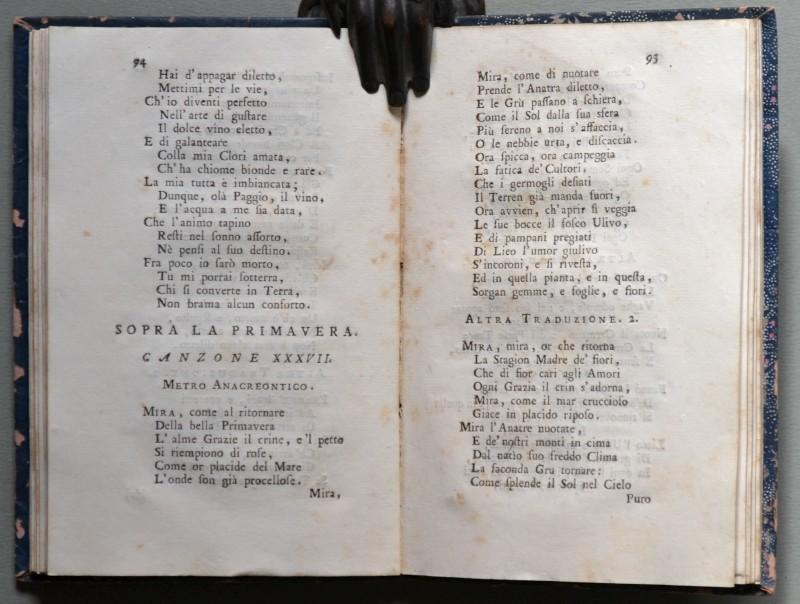 94
Hai d'appagar diletto,
Mettimi per le vie,
Ch'io diventi perfetto
Nell'arte di guſtare
Il dolce vino eletto,
E di galanteare
Colla mia Clori amata,
Ch'ha chiome bionde e rare.
La mia tutta è imbiancata;
Dunque, olà Paggio, il vino,
E l'acqua a me ſia data,
Che l'animo tapino
Reſti nel ſonno aſſorto,
Nè penſi al ſuo deſtino.
Fra poco io ſarò morto,
Tu mi porrai ſotterra,
Chi ſi converte in Terra,
Non brama alcun conforto.
SOPRA LA PRIMAVERA.
CANZONE XXXVII.
METRO ANACREONTICO.
MIRA, come al ritornare
Della bella Primavera
L'alme Grazie il crine, e 'l petto
Si riempiono di roſe,
Come or placide del Mare
L'onde ſon già procelloſe.
Mira,
95
Mira, come di nuotare
Prende l'Anatra diletto,
E le Grù paſſano a ſchiera,
Come il Sol dalla ſua sfera
Più ſereno a noi s'affaccia,
O le nebbie urta, e diſcaccia.
Ora ſpicca, ora campeggia
La fatica de' Cultori,
Che i germogli deſiati
Il Terren già manda fuori,
Ora avvien, ch'aprir ſi veggia
Le ſue bocce il foſco Ulivo,
E di pampani pregiati
Di Lieo l'umor giulivo
S'incoroni, e ſi riveſta,
Ed in quella pianta, e in queſta,
Sorgan gemme, e foglie, e fiori.
ALTRA TRADUZIONE. 2.
MIRA, mira, or che ritorna
La Stagion Madre de' fiori,
Che di fior cari agli Amori
Ogni Grazia il crin s'adorna,
Mira, come il mar crucciolo
Giace in placido ripoſo.
Mira l'Anatre nuotate,
E de' noſtri monti in cima
Dal natìo ſuo freddo Clima
La faconda Gru tornare:
Come ſplende il Sol nel Cielo
Puro